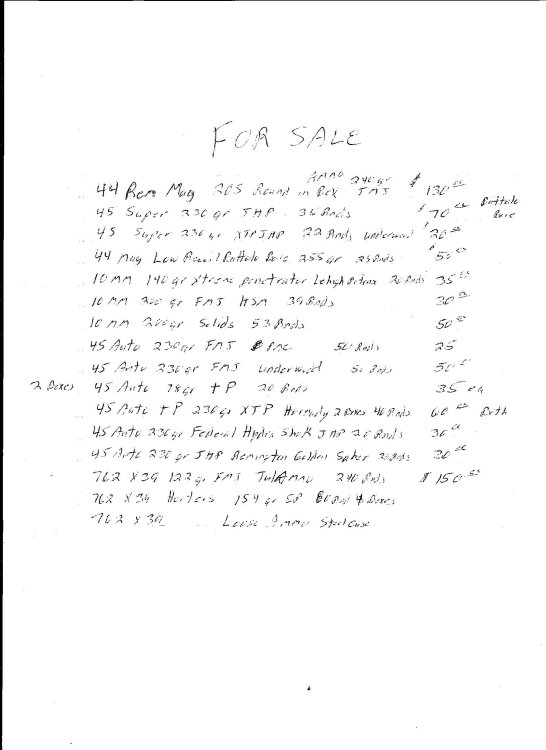 FOR SALE
44 Rem Mag 205 Round in Box Ammo 240 gr TMJ $ 130 00
45 Super 230 gr JHP 35 Rnds $ 70 00 Buffalo Bore
45 Super 230 gr XTP JHP 22 Rnds underwood $ 20 00
44 Mag Low Recoil Buffalo Bore 255 gr 25 Rnds $ 50 00
10 MM 140 gr Xtreme penetrator Lehigh Defense 20 Rnds 35 00
10 MM 200 gr FMJ HSM 39 Rnds 30 00
10 MM 200 gr Solids 53 Rnds 50 00
45 Auto 230 gr FMJ PMC 50 Rnds 25
45 Auto 230 gr FMJ underwood 50 Rnds 50 00
2 Boxes 45 Auto 78 gr +P 20 Rnds 35 ea
45 Auto +P 230 gr XTP Hornady 2 Boxes 40 Rnds 60 00 Both
45 Auto 230 gr Federal Hydra Shok JHP 20 Rnds 30 00
45 Auto 230 gr JHP Remington Golden Saber 20 Rnds 30 00
762 X 39 122 gr FMJ TulAmmo 240 Rnds $ 150 00
762 X 39 Herters 154 gr SP 80 Rnd 4 Boxes
762 X 39 Loose Ammo Steel Case